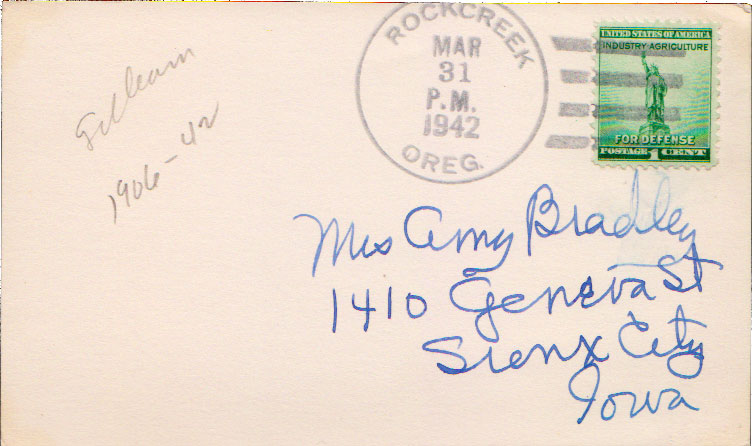 ROCKCREEK
MAR
31
P.M.
1942
OREG.
UNITED STATES OF AMERICA
INDUSTRY AGRICULTURE
FOR DEFENSE
POSTAGE 1 CENT
Gilliam
1906-42
Mrs Amy Bradley
1410 Geneva St
Sioux City
Iowa